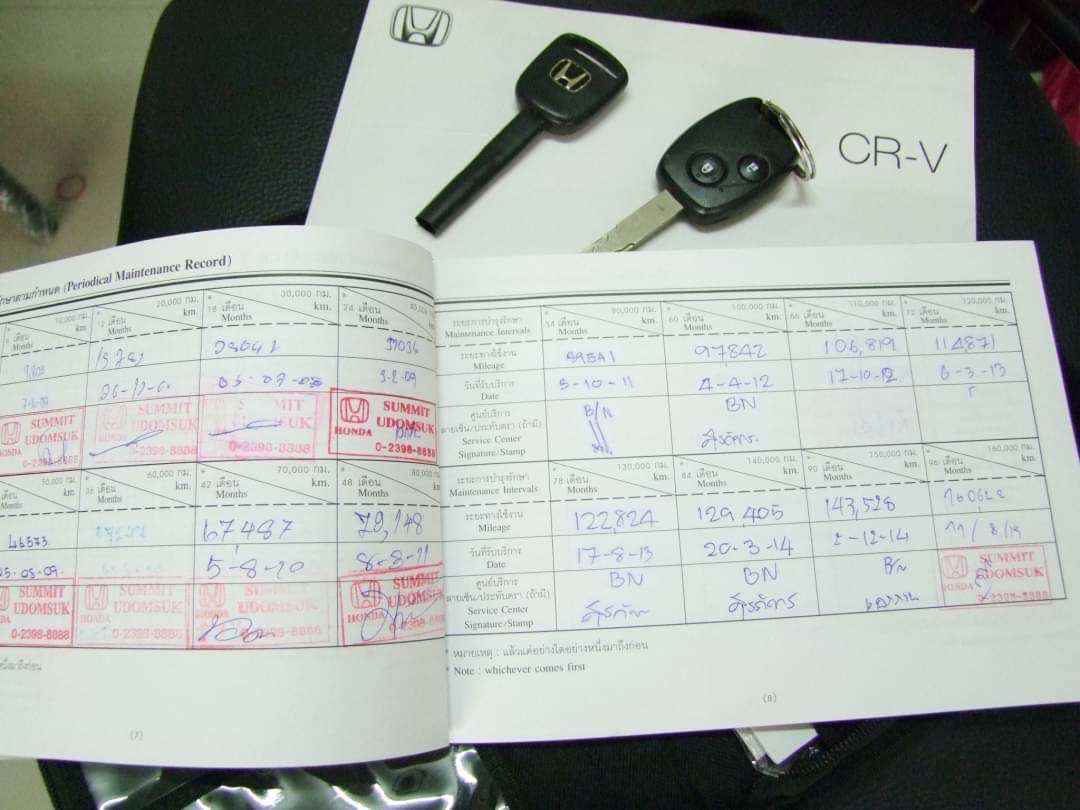 CR-V
รักษาตามกำหนด (Periodical Maintenance Record)
10,000 กม. km. เดือน Months
20,000 กม. km. 12 เดือน Months
30,000 กม. km. 18 เดือน Months
24 เดือน Months
7-6-07
3-2-09
SUMMIT UDOMSUK HONDA 0-2398-8888
SUMMIT UDOMSUK HONDA 0-2398-8888
SUMMIT UDOMSUK HONDA 0-2398-8888
SUMMIT UDOMSUK HONDA 0-2398-8888
50,000 กม. km. เดือน Months
60,000 กม. km. 36 เดือน Months
70,000 กม. km. 42 เดือน Months
80,000 กม. 48 เดือน Months
46573
67487
79,148
05-08-09
5-8-10
SUMMIT UDOMSUK HONDA 0-2398-8888
SUMMIT UDOMSUK HONDA 0-2398-8888
SUMMIT UDOMSUK HONDA 0-2398-8888
SUMMIT UDOMSUK HONDA
หนึ่งมาถึงก่อน
(7)
ระยะการบำรุงรักษา Maintenance Intervals
90,000 กม. km. 54 เดือน Months
100,000 กม. km. 60 เดือน Months
110,000 กม. km. 66 เดือน Months
120,000 กม. km. 72 เดือน Months
ระยะทางใช้งาน Mileage
89541
97842
106,819
114871
วันที่รับบริการ Date
5-10-11
4-4-12
17-10-12
6-3-13
ศูนย์บริการ ลายเซ็น/ประทับตรา (ถ้ามี) Service Center Signature/Stamp
B/N
BN
ระยะการบำรุงรักษา Maintenance Intervals
130,000 กม. km. 78 เดือน Months
140,000 กม. km. 84 เดือน Months
150,000 กม. km. 90 เดือน Months
160,000 กม. km. 96 เดือน Months
ระยะทางใช้งาน Mileage
122,824
129,405
143,528
วันที่รับบริการ Date
17-8-13
20-3-14
2-12-14
ศูนย์บริการ ลายเซ็น/ประทับตรา (ถ้ามี) Service Center Signature/Stamp
BN
BN
B/N
SUMMIT UDOMSUK HONDA 0-2398-8888
* หมายเหตุ : แล้วแต่อย่างใดอย่างหนึ่งมาถึงก่อน
* Note : whichever comes first
(8)